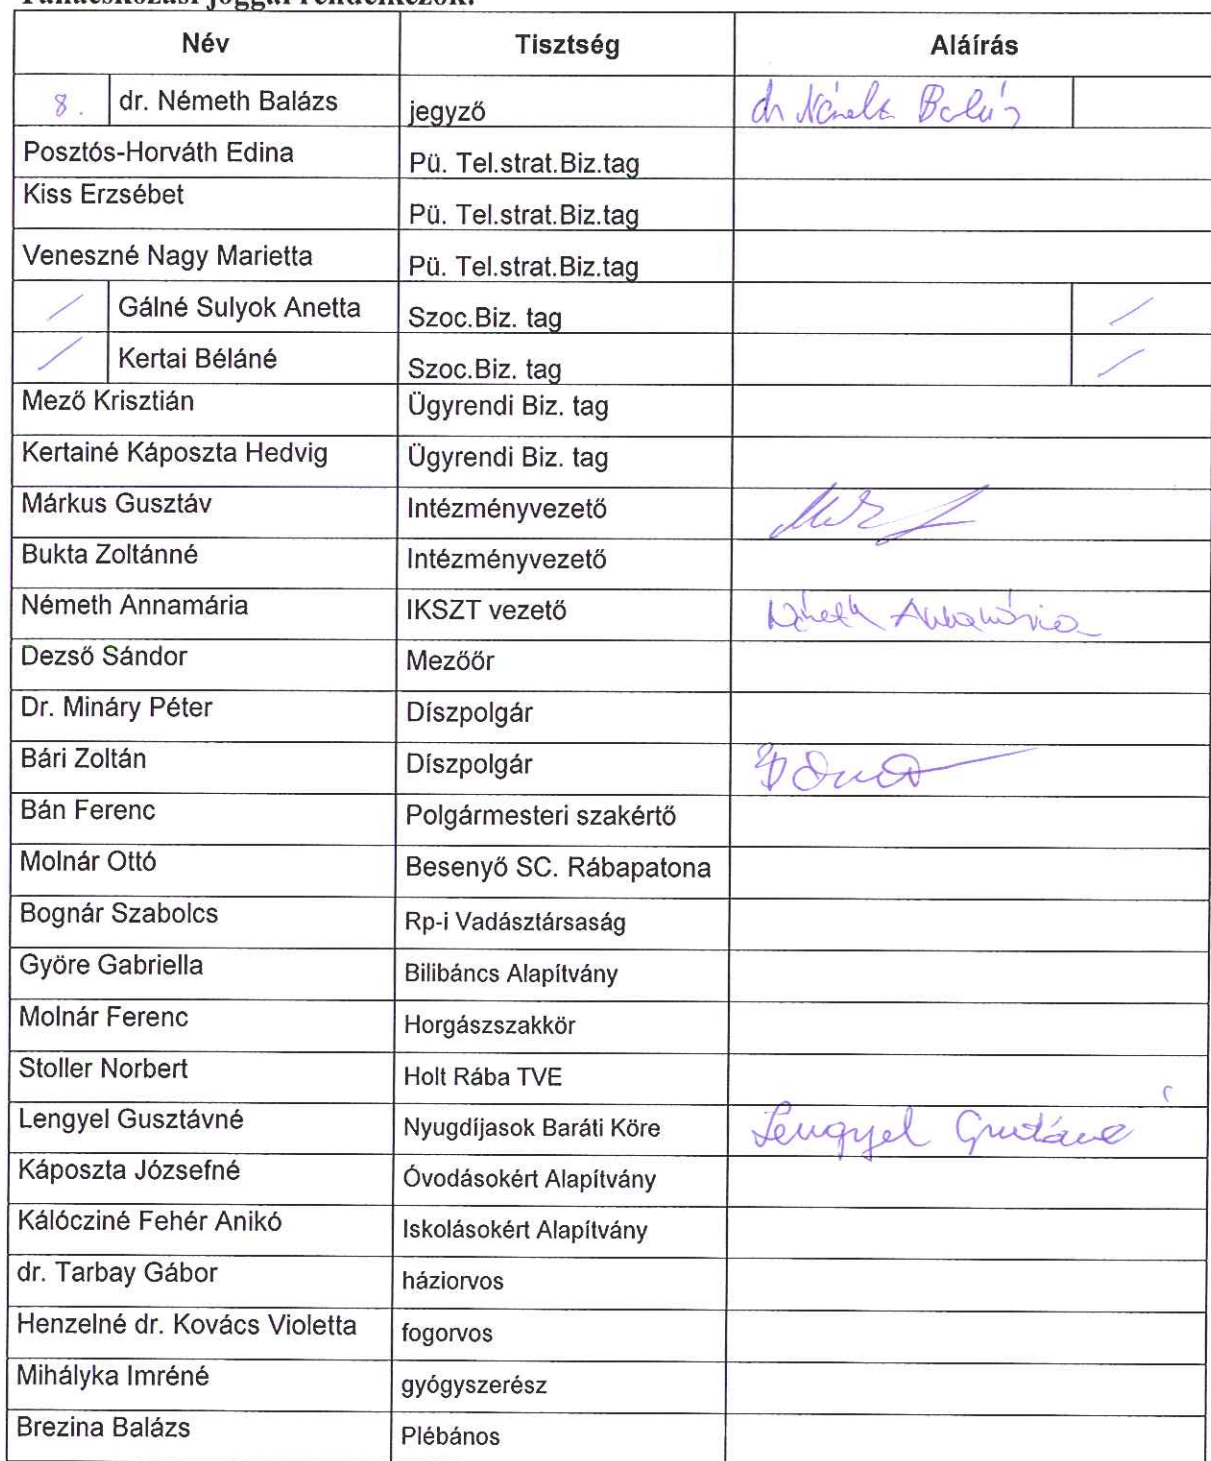 Tanácskozási joggal rendelkezők:
Név Tisztség Aláírás
8. dr. Németh Balázs jegyző dr Németh Balázs
Posztós-Horváth Edina Pü. Tel.strat.Biz.tag
Kiss Erzsébet Pü. Tel.strat.Biz.tag
Veneszné Nagy Marietta Pü. Tel.strat.Biz.tag
/ Gálné Sulyok Anetta Szoc.Biz. tag /
/ Kertai Béláné Szoc.Biz. tag /
Mező Krisztián Ügyrendi Biz. tag
Kertainé Káposzta Hedvig Ügyrendi Biz. tag
Márkus Gusztáv Intézményvezető
Bukta Zoltánné Intézményvezető
Németh Annamária IKSZT vezető Németh Annamária
Dezső Sándor Mezőőr
Dr. Mináry Péter Díszpolgár
Bári Zoltán Díszpolgár
Bán Ferenc Polgármesteri szakértő
Molnár Ottó Besenyő SC. Rábapatona
Bognár Szabolcs Rp-i Vadásztársaság
Györe Gabriella Bilibáncs Alapítvány
Molnár Ferenc Horgászszakkör
Stoller Norbert Holt Rába TVE
Lengyel Gusztávné Nyugdíjasok Baráti Köre Lengyel Gusztávné
Káposzta Józsefné Óvodásokért Alapítvány
Kálócziné Fehér Anikó Iskolásokért Alapítvány
dr. Tarbay Gábor háziorvos
Henzelné dr. Kovács Violetta fogorvos
Mihályka Imréné gyógyszerész
Brezina Balázs Plébános